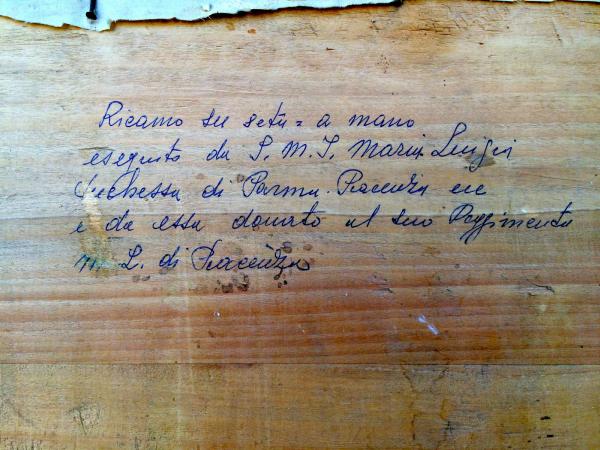 Ricamo su seta = a mano
eseguito da S. M. I. Maria Luigia
Duchessa di Parma. Piacenza ecc
e da essa donato al suo Reggimento
M. L. di Piacenza